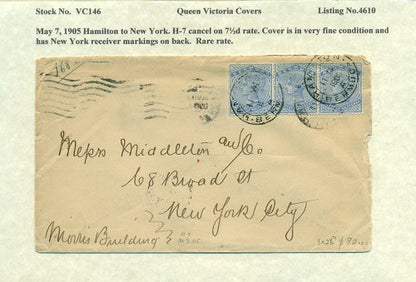 Stock No. VC146 Queen Victoria Covers Listing No.4610
May 7, 1905 Hamilton to New York. H-7 cancel on 7½d rate. Cover is in very fine condition and
has New York receiver markings on back. Rare rate.
Messrs Middleton and Co
68 Broad St
New York City
Morris Building